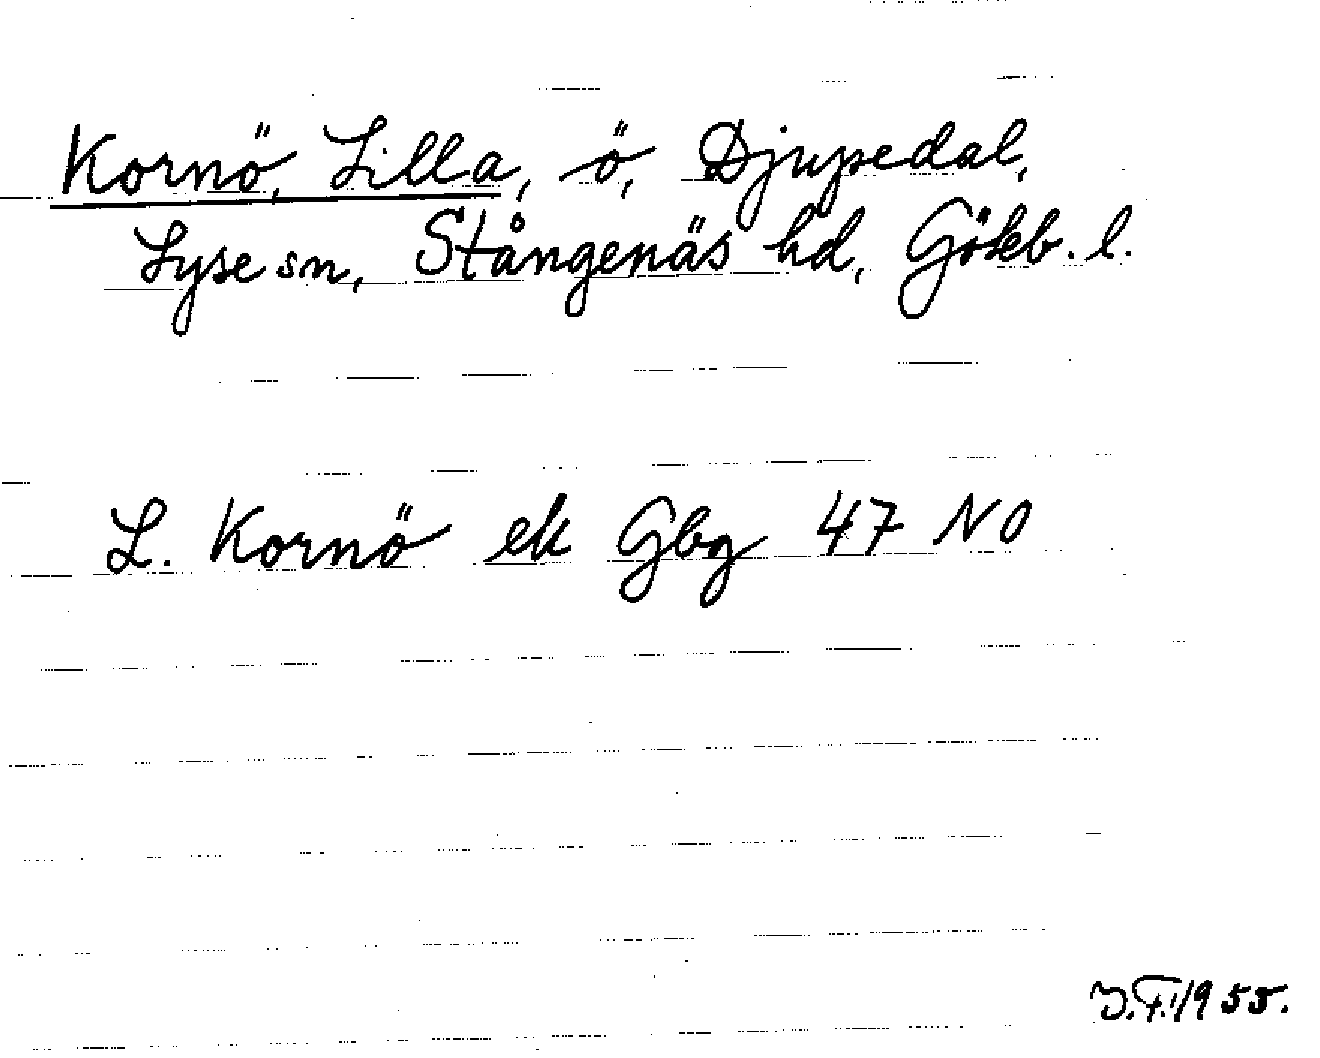 Kornö, Lilla, ö, Djupedal,
Lyse sn, Stångenäs hd, Göteb. l.
L. Kornö ek Gbg 47 NO
J.F. 1955.